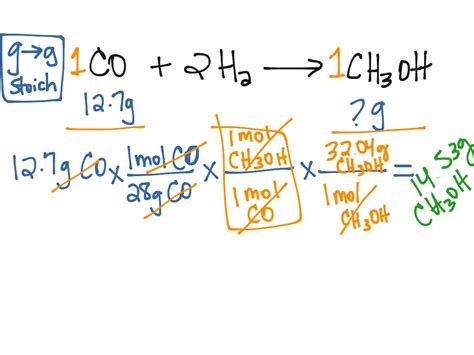 g→g
Stoich
1CO + 2H₂ → 1CH₃OH
12.7g ?g
12.7g CO x 1mol CO / 28g CO x 1mol CH₃OH / 1mol CO x 32.04g CH₃OH / 1mol CH₃OH = 14.53g CH₃OH